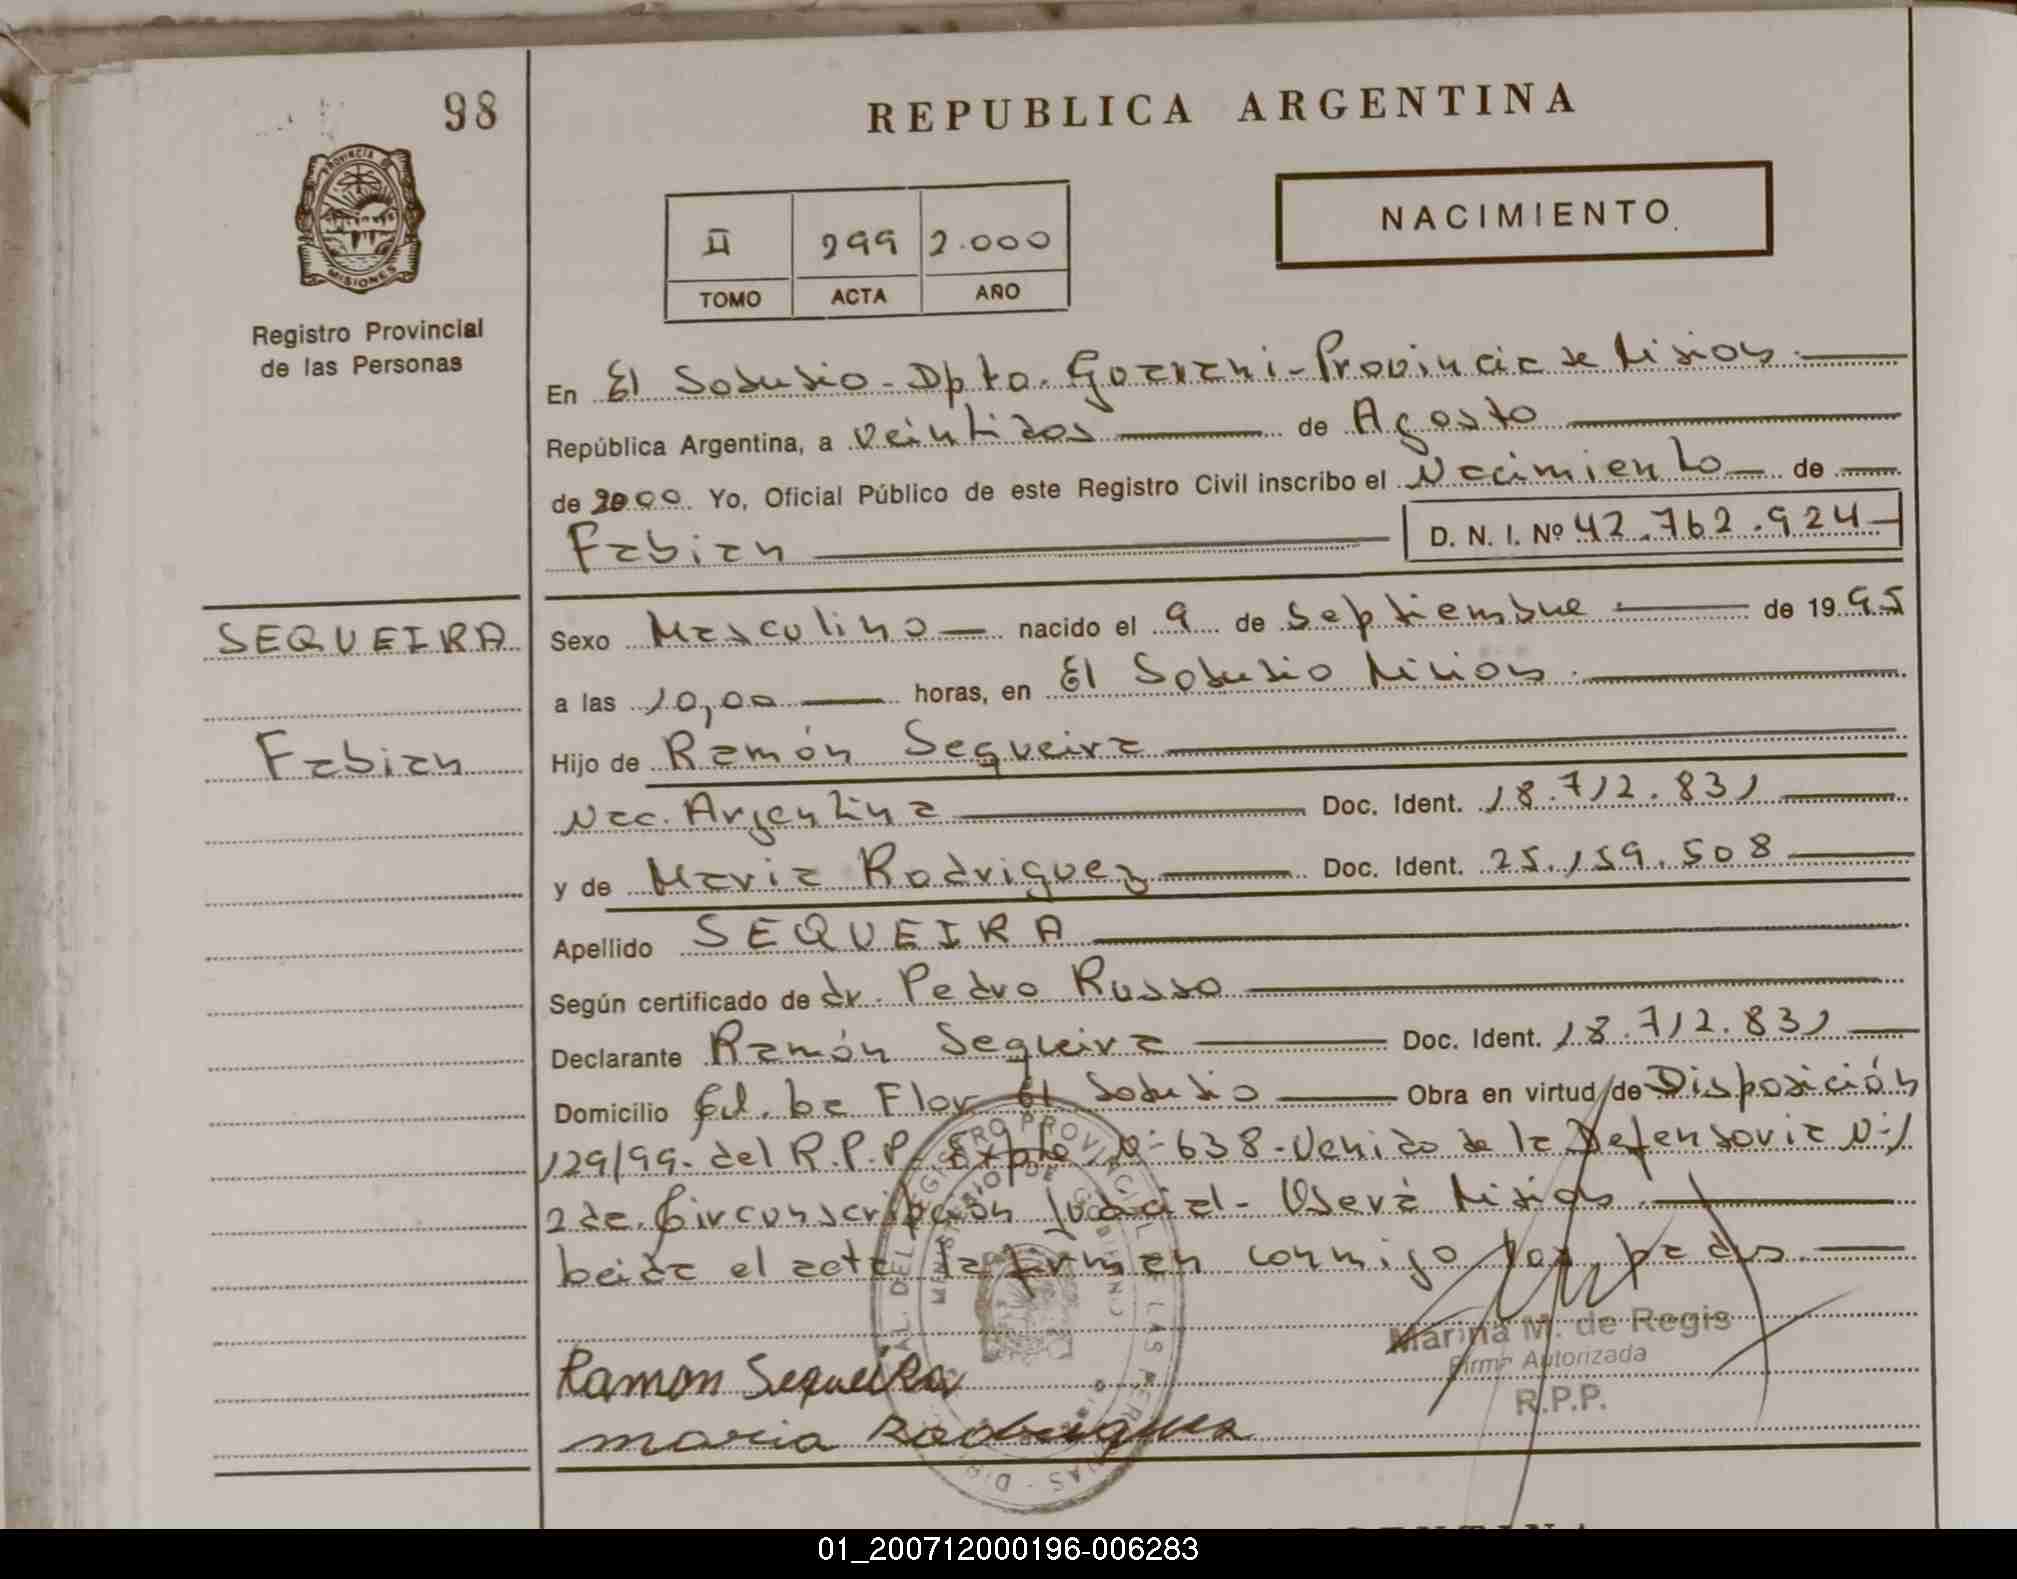 98
REPUBLICA ARGENTINA
PROVINCIA DE
MISIONES
NACIMIENTO
II 299 2.000
TOMO ACTA AÑO
Registro Provincial
de las Personas
En El Soberbio - Dpto. Guarani - Provincia de Misiones.
República Argentina, a veintidos de Agosto
de 2000. Yo, Oficial Público de este Registro Civil inscribo el Nacimiento de
Fabian
D. N. I. Nº 42.762.924
SEQUEIRA
Fabian
Sexo Masculino nacido el 9 de Septiembre de 1995
a las 10,00 horas, en El Soberbio Misiones.
Hijo de Ramón Sequeira
Nac. Argentina Doc. Ident. 18.712.831
y de Maria Rodriguez Doc. Ident. 25.159.508
Apellido SEQUEIRA
Según certificado de dr. Pedro Russo
Declarante Ramón Sequeira Doc. Ident. 18.712.831
Domicilio Col. La Flor El Soberbio Obra en virtud de Disposición
129/99. del R.P.P. Expte Nº 638 - Venido de la Defensoria Nº 1
2da. Circunscripción Judicial - Oberá Misiones.
Leida el acta la firman conmigo los padres.
Marina M. de Regis
Firma Autorizada
R.P.P.
Ramon Sequeira
maria Rodriguez
01_200712000196-006283